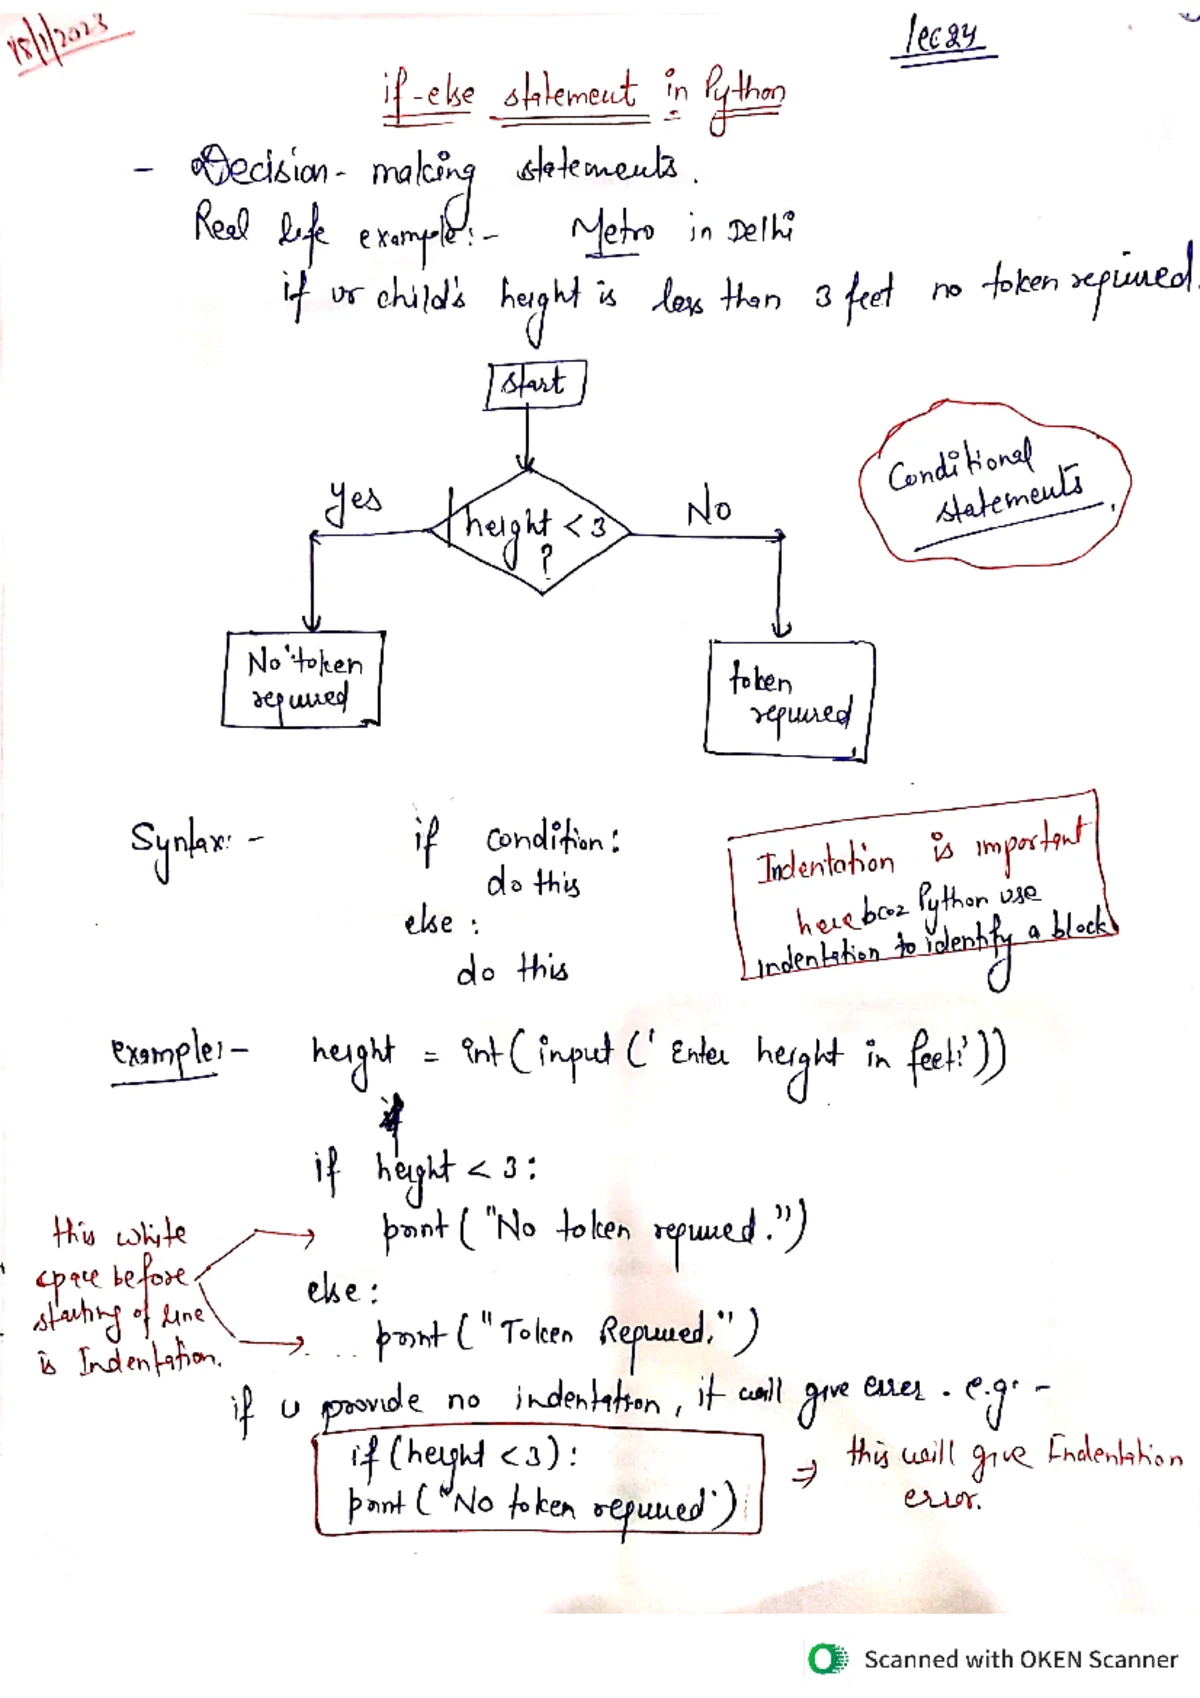 18/1/2023
lec 24
if-else statement in Python
- Decision-making statements.
Real life example:- Metro in Delhi
if ur child's height is less than 3 feet no token required.
start
Yes
height < 3
?
No
Conditional
statements.
No token
required
token
required
Syntax:- if condition:
do this
else:
do this
Indentation is important
here bcoz Python use
indentation to identify a block
example:- height = int(input('Enter height in feet:'))
if height < 3:
print("No token required.")
else:
print("Token Required.")
this white
space before
starting of line
is Indentation.
if u provide no indentation, it will give error. e.g:-
if (height < 3):
print("No token required")
⇒ this will give Indentation
error.
Scanned with OKEN Scanner